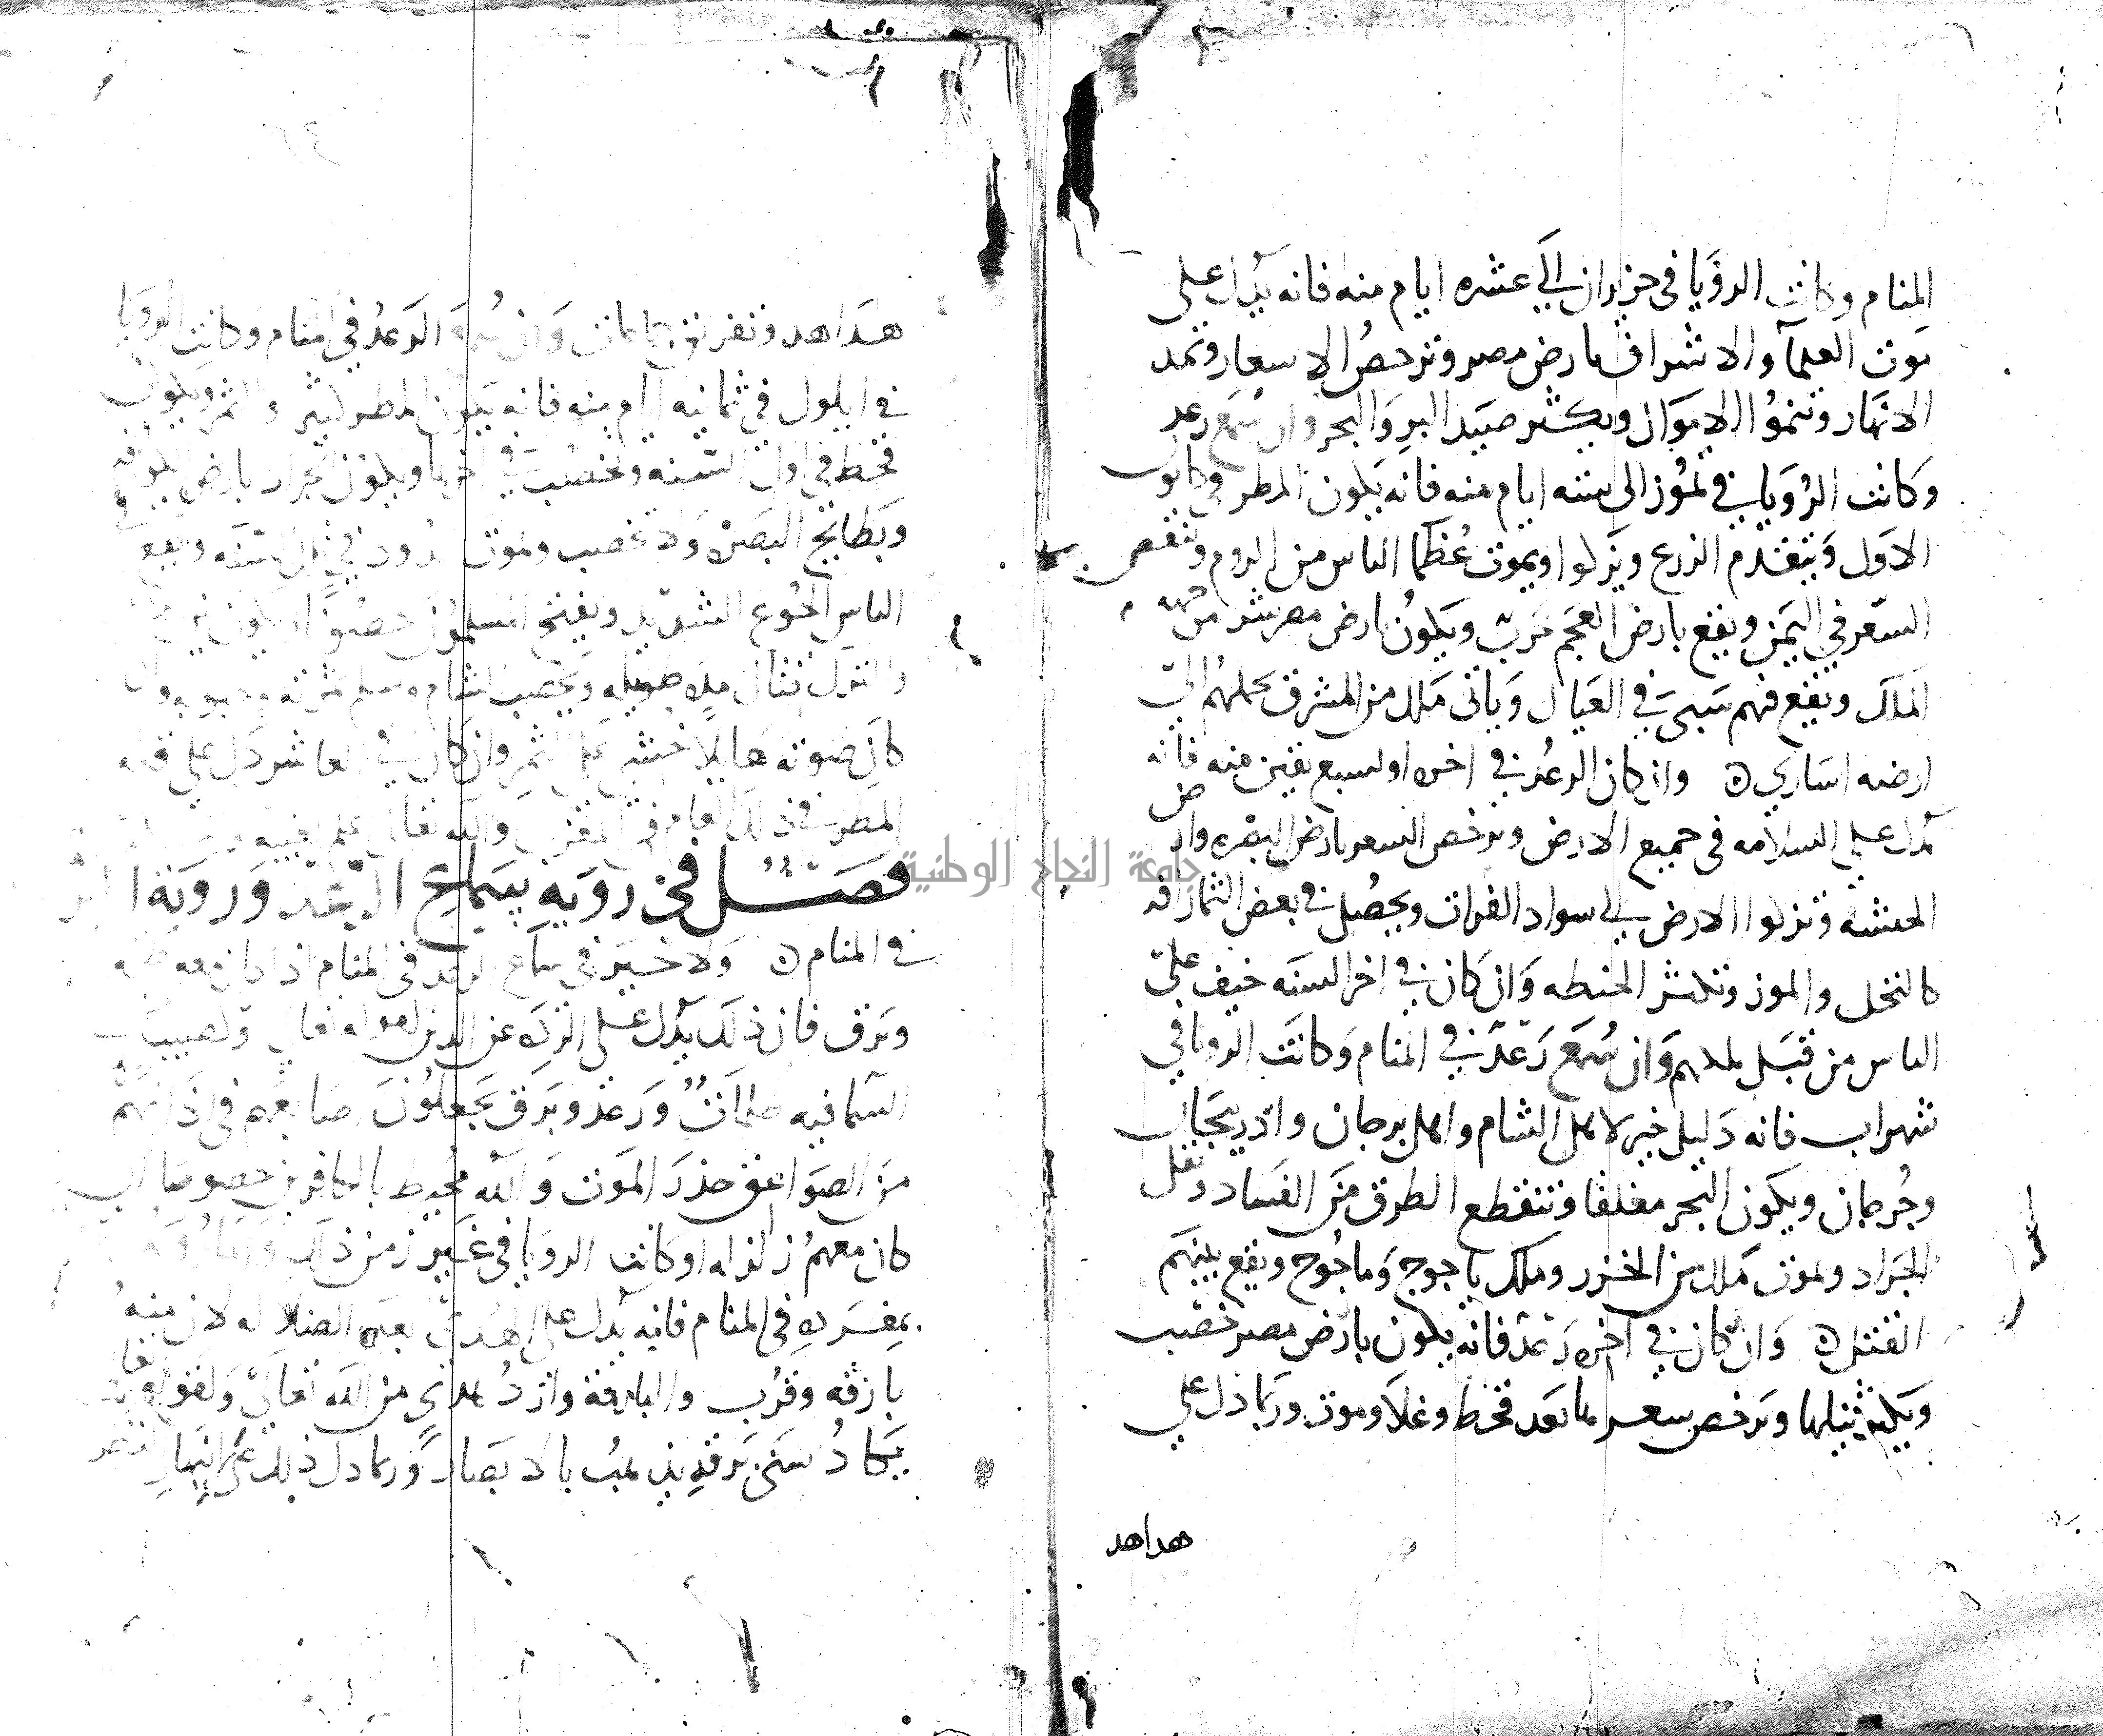 المنام وكانت الرؤيا في حزيران الي عشره ايام منه فانه يدل على
موت العلمآ والاشراف بارض مصر وترخص الاسعار وتمد
الانهار وتنموا الاموال ويكثر صيد البر والبحر وان سمع رعد
وكانت الرؤيا في تموز الى سته ايام منه فانه يكون المطر في كانون
الاول ويتقدم الزرع ويزكوا ويموت عظما الناس من الروم وينقص
السعر في اليمن ويقع بارض العجم حرب ويكون بارض مصر شر من جهة
الملك ويقع فيهم سبي في العيال وياتى ملك من المشرق يحملهم الى
ارضه اسارى وان كان الرعد في اخره او لسبع بقين منه فانه
يدل على السلامه في جميع الارض وترخص السعر بارض البصره وارض
الحبشه وتزكوا الارض الى سواد الفرات ويحصل في بعض الثمار افه
كالنخل والموز وتكثر الحنطه وان كان في اخر السنه خيف على
الناس من قبل ملكهم وان سمع رعد في المنام وكانت الرويا في
شهر اب فانه دليل خير لاهل الشام واهل برجان واذربيجان
وجرجان ويكون البحر مغلقا وتنقطع الطرق من الفساد ويقل
الجراد ويموت ملك من الخزر وملك ياجوج وماجوج ويقع بينهم
القتل وان كان في آخره رعد فانه يكون بارض مصر خصب
ويكثر نيلها وترخص سعرها بعد قحط وغلا وموت وربما دل على
هداهد
هداهد وتفرق جماعات وان سمع الرعد في المنام وكانت الرويا
في ايلول في ثمانيه ايام منه فانه يكون المطر كثير والثمر ويكون
قحط في اول السنه وتخصب في اخرها ويكون الجراد بارض الكوفه
وبطايح البصره ولا تخصب ويموت الدود في تلك السنه ويقع
الناس الجوع الشديد ويفتح المسلمون حصونا ويكون بين
والترك قتال مده طويله وتخصب الشام وان
كان صوته هايلا خشي على الثمر وان كان في العاشر دل على قله
المطر في ذلك العام في المغرب والله تعالى اعلم
فصل في رويه سماع الرعد ورويه البرق
في المنام ولا خير في سماع الرعد في المنام اذا كان معه ظلمه
وبرق فان ذلك يدل على الترك عن الدين لقوله تعالى وكصيب من
السما فيه ظلمات ورعد وبرق يجعلون اصابعهم في اذانهم
من الصواعق حذر الموت والله محيط بالكافرين خصوصا ان
كان معهم زلزله او كانت الرويا في غير زمن ذلك
بمفرده في المنام فانه يدل على الهدى بعد الضلاله لان منه
بارقه وقرب والبارقة وارد هدى من الله تعالى ولقوله تعالى
يكاد سنى برقه يذهب بالابصار وربما دل ذلك على
جامعة النجاح الوطنية